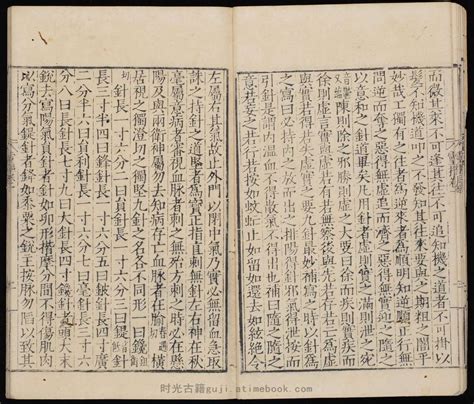 而微其來不可逢其往不可追知機之道者不可掛以
髮不知機道叩之不發知其往來要與之期粗之闇乎
妙哉工獨有之往者為逆來者為順明知逆順正行無
問逆而奪之惡得無虛追而濟之惡得無實迎之隨之以
意和之針道畢矣凡用針者虛則實之滿則泄之
陳則除之邪勝則虛之大要曰徐而疾則實疾而
徐則虛言實與虛若有若無察後與先若存若亡為虛
與實若得若失虛實之要九針最妙補瀉之時以針為
之瀉曰必持內之放而出之排陽得針邪氣得泄按而
引針是謂內溫血不得散氣不得出也補曰隨之隨之
意若妄之若行若按如蚊虻止如留如還去如絃絕令
左屬右其氣故止外門以閉中氣乃實必無留血急取
誅之持針之道堅者為寶正指直刺無針左右神在秋
毫屬意病者審視血脈者刺之無殆方刺之時必在懸
陽及與兩衛神屬勿去知病存亡血脈者在腧橫
居視之獨澄切之獨堅九針之名各不同形一曰鑱
針長一寸六分二曰員針長一寸六分三曰鍉針
長三寸半四曰鋒針長一寸六分五曰鈹針長四寸廣
二分半六曰員利針長一寸六分七曰毫針長三寸六
分八曰長針長七寸九曰大針長四寸鑱針者頭大末
銳去瀉陽氣員針者針如卵形揩摩分間不得傷肌肉
以瀉分氣鍉針者鋒如黍粟之銳主按脈勿陷以致其
时光古籍guji.atimebook.com